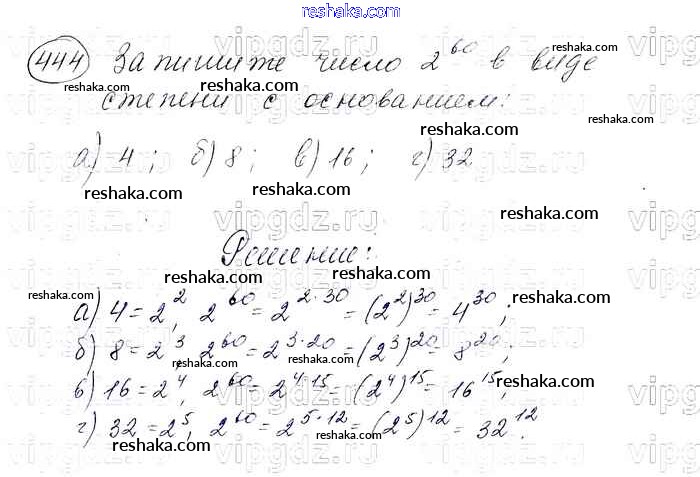 reshaka.com
444 Запишите число 2^60 в виде
степени с основанием:
а) 4; б) 8; в) 16; г) 32
Решение:
а) 4 = 2^2, 2^60 = 2^{2·30} = (2^2)^30 = 4^30;
б) 8 = 2^3, 2^60 = 2^{3·20} = (2^3)^20 = 8^20;
в) 16 = 2^4, 2^60 = 2^{4·15} = (2^4)^15 = 16^15;
г) 32 = 2^5, 2^60 = 2^{5·12} = (2^5)^12 = 32^12.